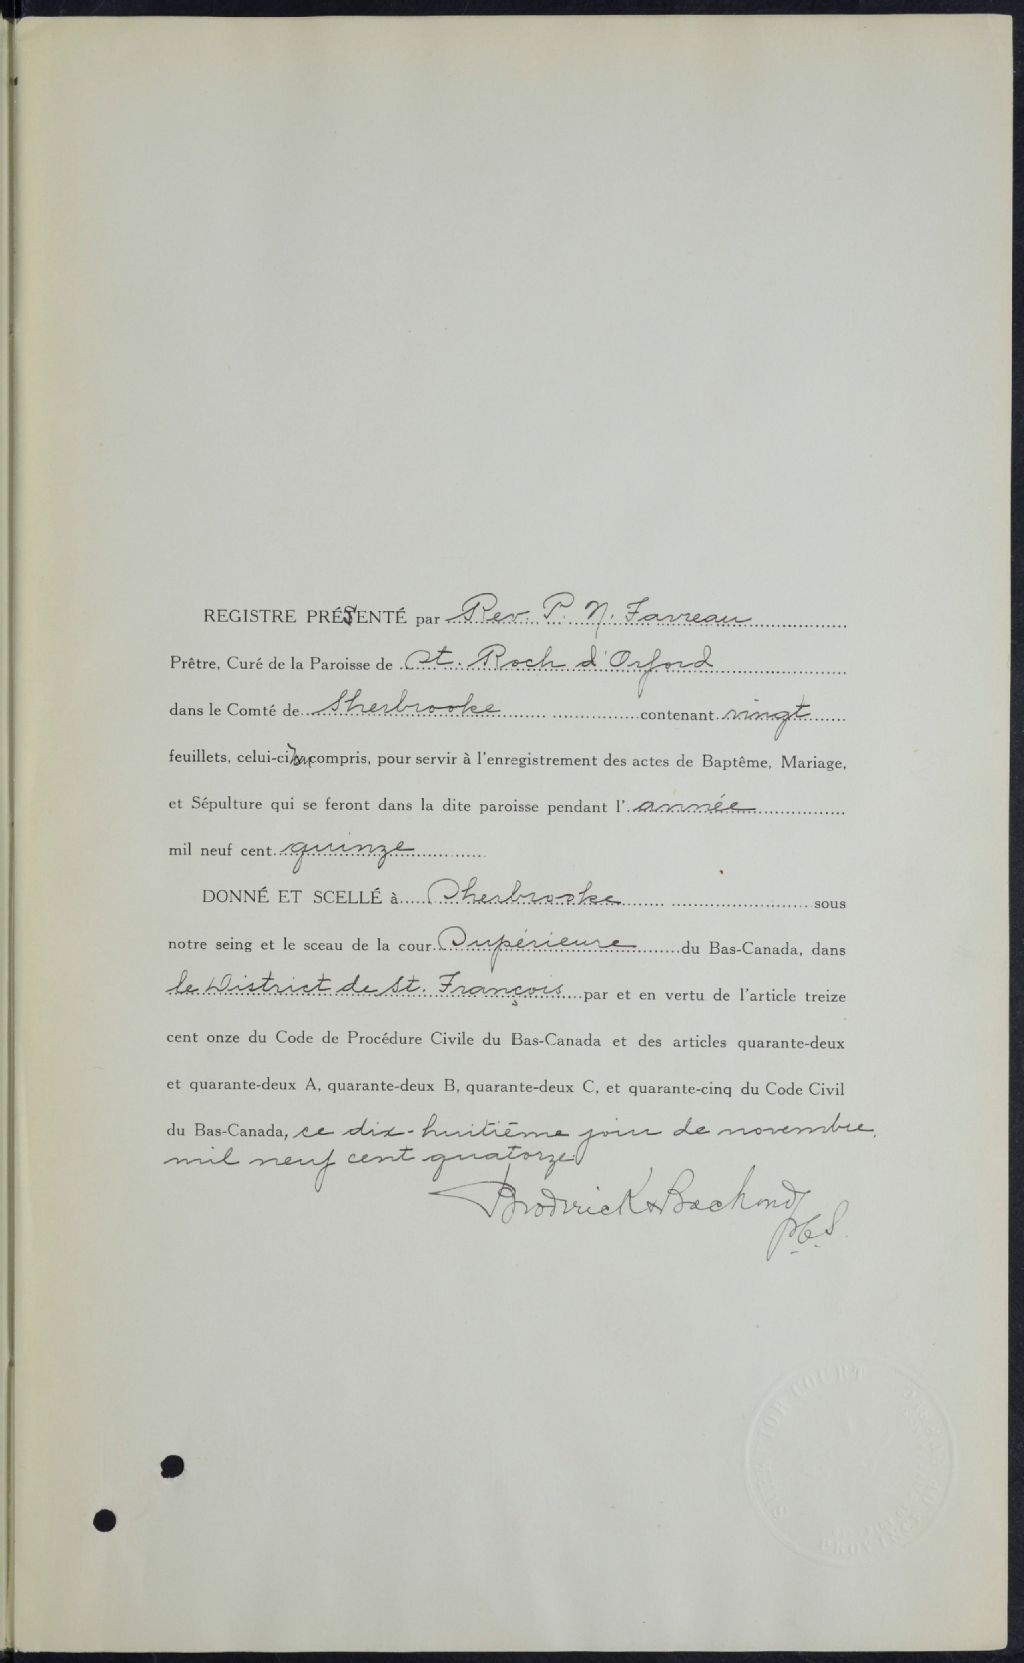 REGISTRE PRÉSENTÉ par Rev. P. N. Favreau
Prêtre, Curé de la Paroisse de St. Roch d'Orford
dans le Comté de Sherbrooke contenant vingt
feuillets, celui-ci compris, pour servir à l'enregistrement des actes de Baptême, Mariage,
et Sépulture qui se feront dans la dite paroisse pendant l'année
mil neuf cent quinze
DONNÉ ET SCELLÉ à Sherbrooke sous
notre seing et le sceau de la cour Supérieure du Bas-Canada, dans
le District de St. François par et en vertu de l'article treize
cent onze du Code de Procédure Civile du Bas-Canada et des articles quarante-deux
et quarante-deux A, quarante-deux B, quarante-deux C, et quarante-cinq du Code Civil
du Bas-Canada, ce dix-huitième jour de novembre,
mil neuf cent quatorze
Broderick & Bachand
P.C.S.
SUPERIOR COURT
PROVINCE OF